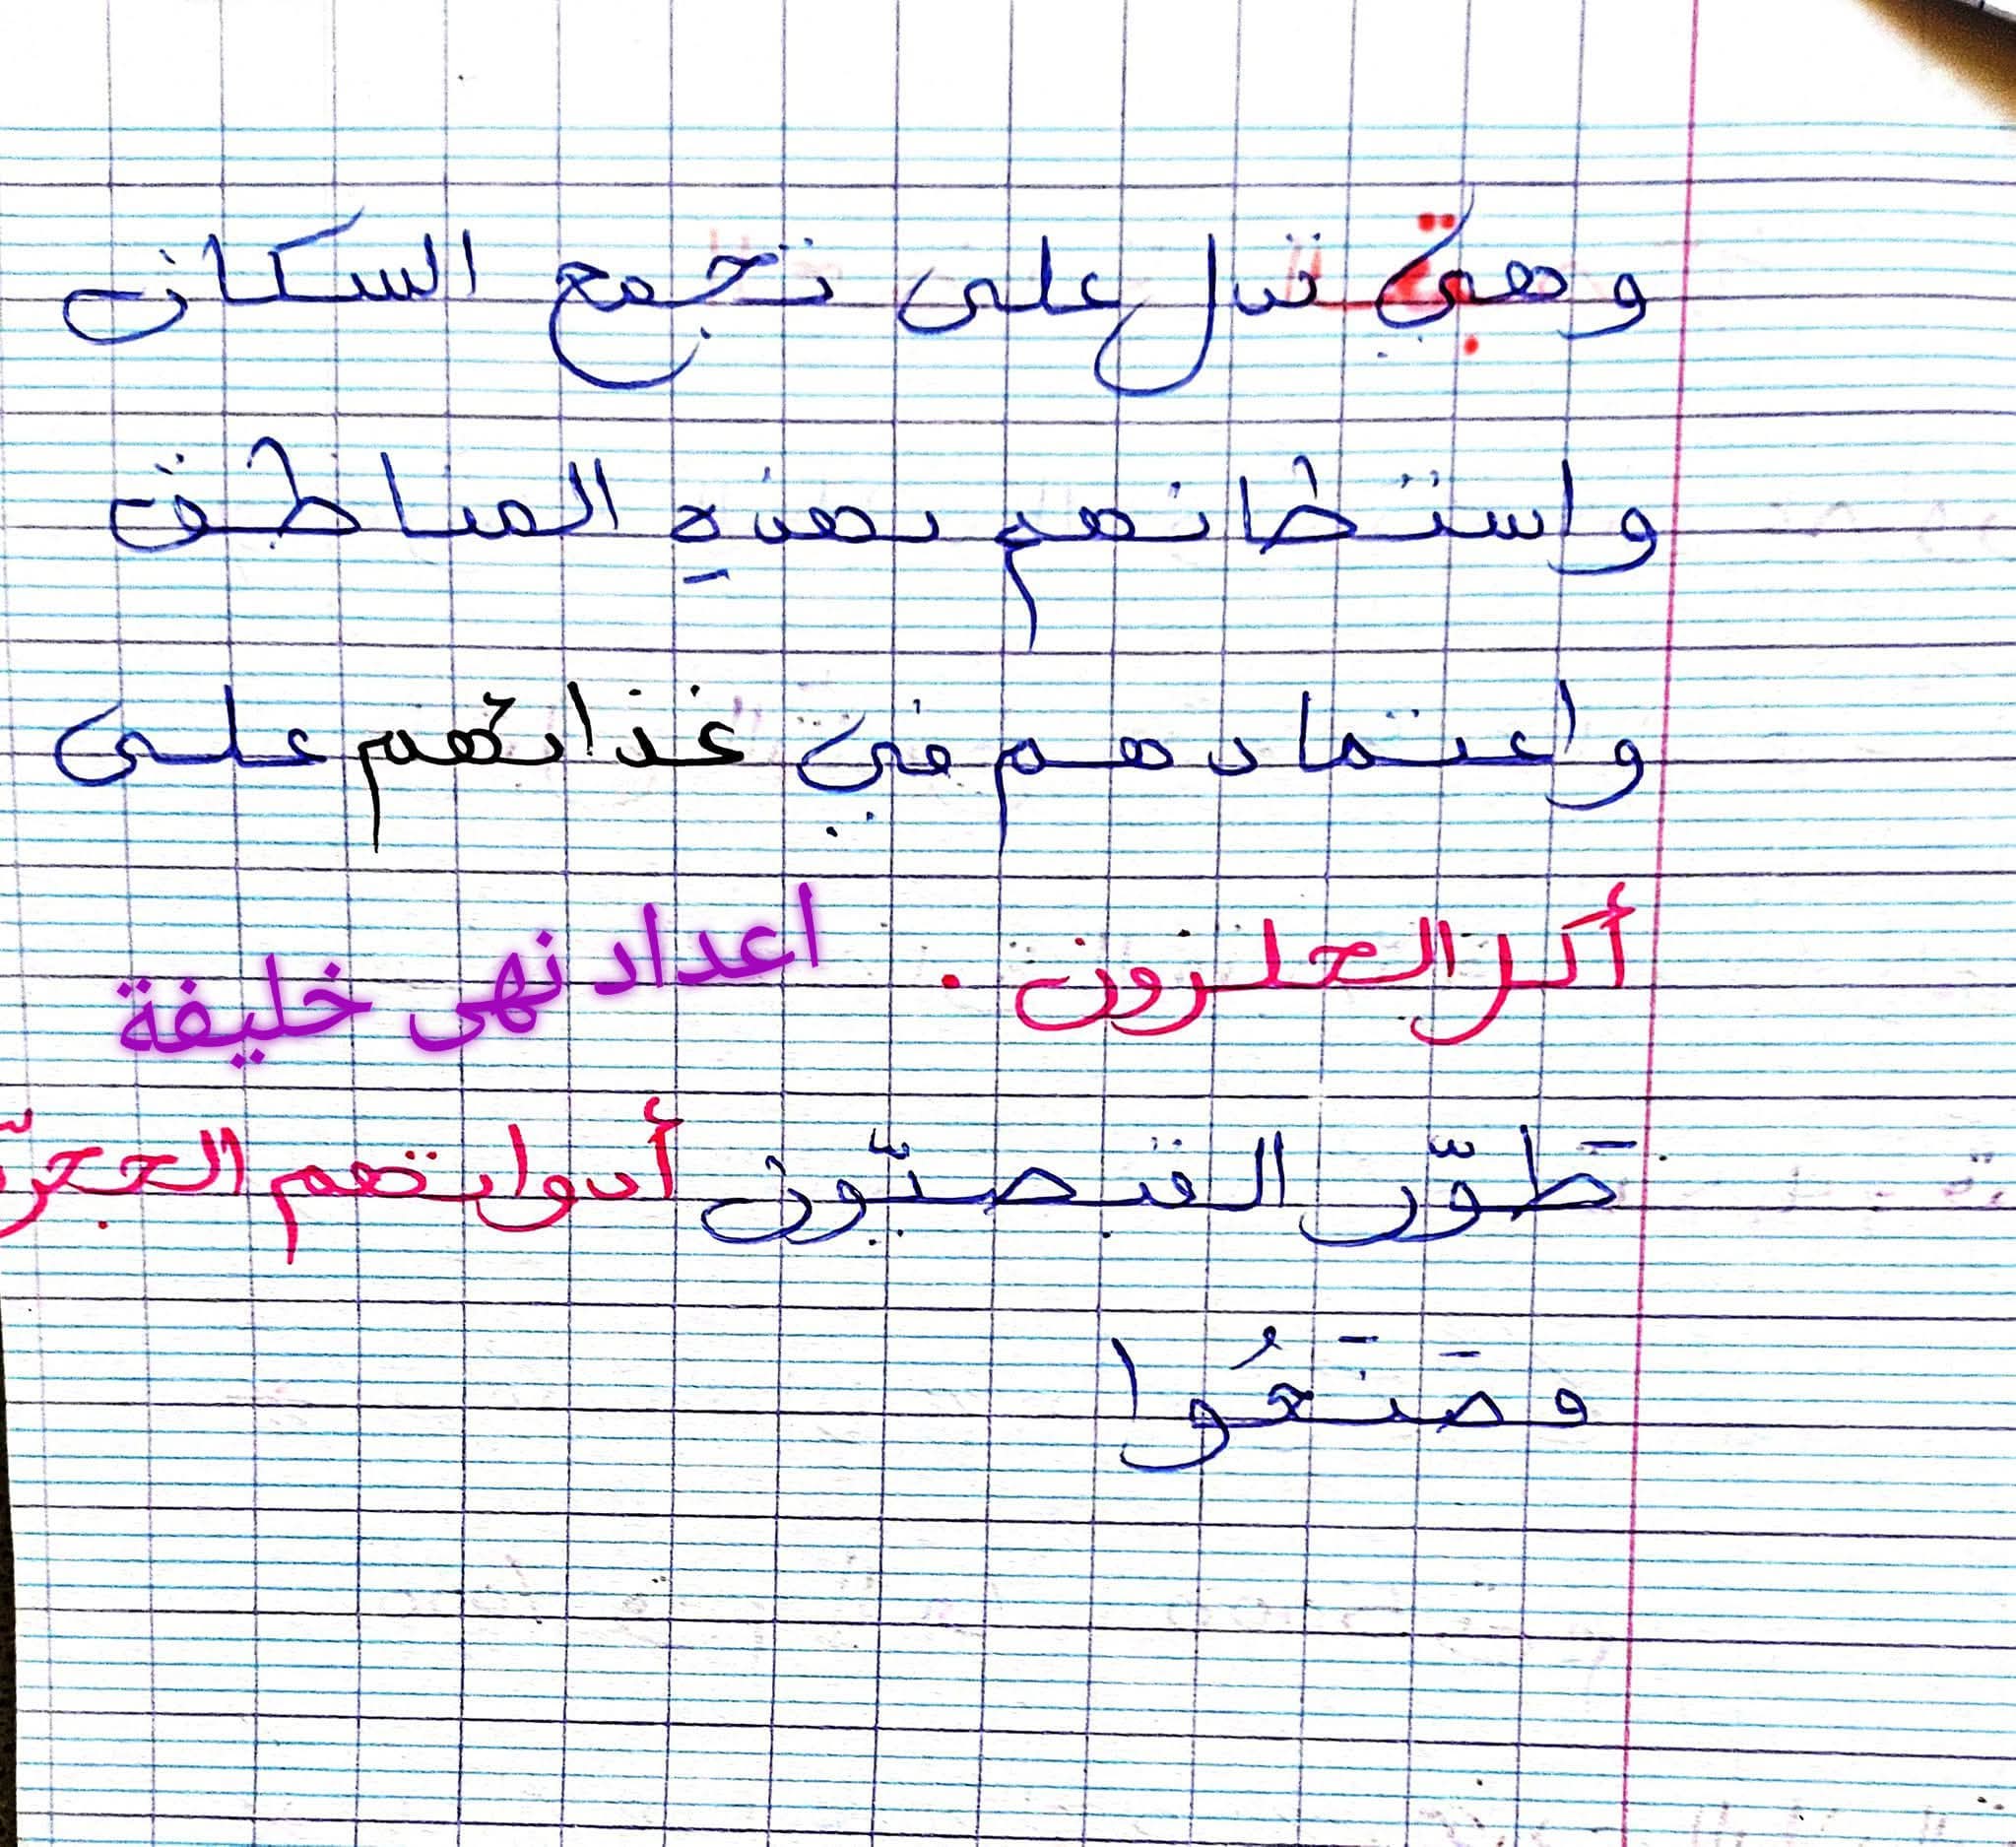 وهي تدل على تجمع السكان
واستطانهم بهذهِ المناطق
واعتمادهم في غذائهم على
أكل الحلزون . اعداد نهى خليفة
طَوّر القبصيّون أدواتهم الحجريّ
وصَنَعُوا